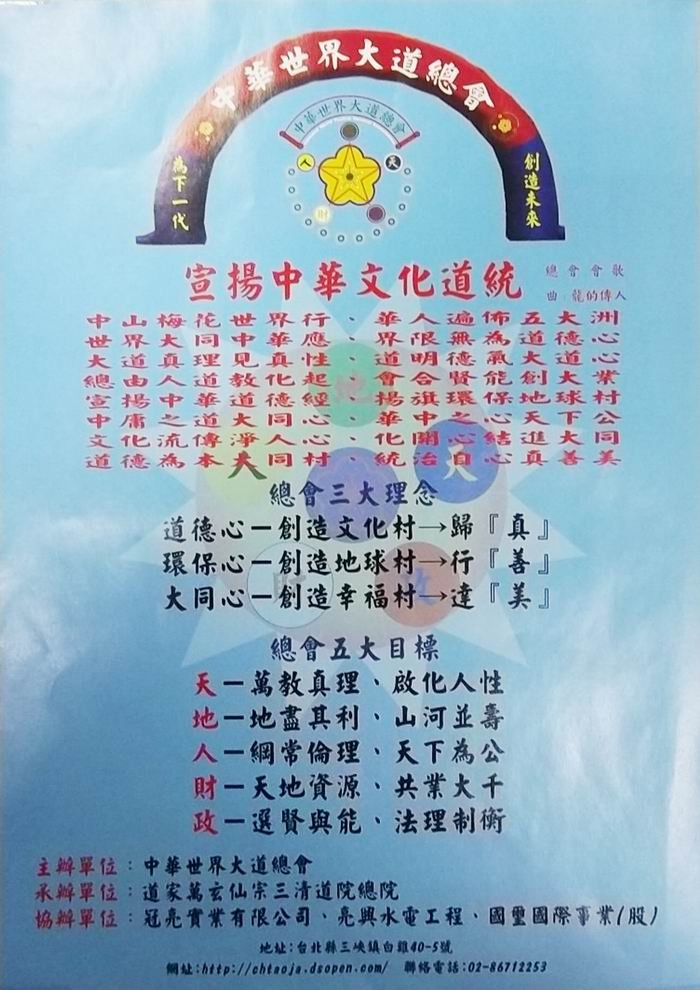 中華世界大道總會
中華世界大道總會
人 天
財
為下一代
創造未來
宣揚中華文化道統
總會會歌
曲：龍的傳人
中山梅花世界行、華人遍佈五大洲
世界大同中華應、界限無為道德心
大道真理見真性、道明德氣大道心
總由人道教化起、會合賢能創大業
宣揚中華道德經、揚旗環保地球村
中庸之道大同心、華中之心天下公
文化流傳淨人心、化關心結進大同
道德為本大同村、統治自心真善美
地
人 天
財 政
總會三大理念
道德心－創造文化村→歸『真』
環保心－創造地球村→行『善』
大同心－創造幸福村→達『美』
總會五大目標
天－萬教真理、啟化人性
地－地盡其利、山河並壽
人－綱常倫理、天下為公
財－天地資源、共業大千
政－選賢與能、法理制衡
主辦單位：中華世界大道總會
承辦單位：道家萬玄仙宗三清道院總院
協辦單位：冠亮實業有限公司、亮興水電工程、國璽國際事業(股)
地址:台北縣三峽鎮白雞40-5號
網址:http://chtaoja.dsopen.com/ 聯絡電話:02-86712253